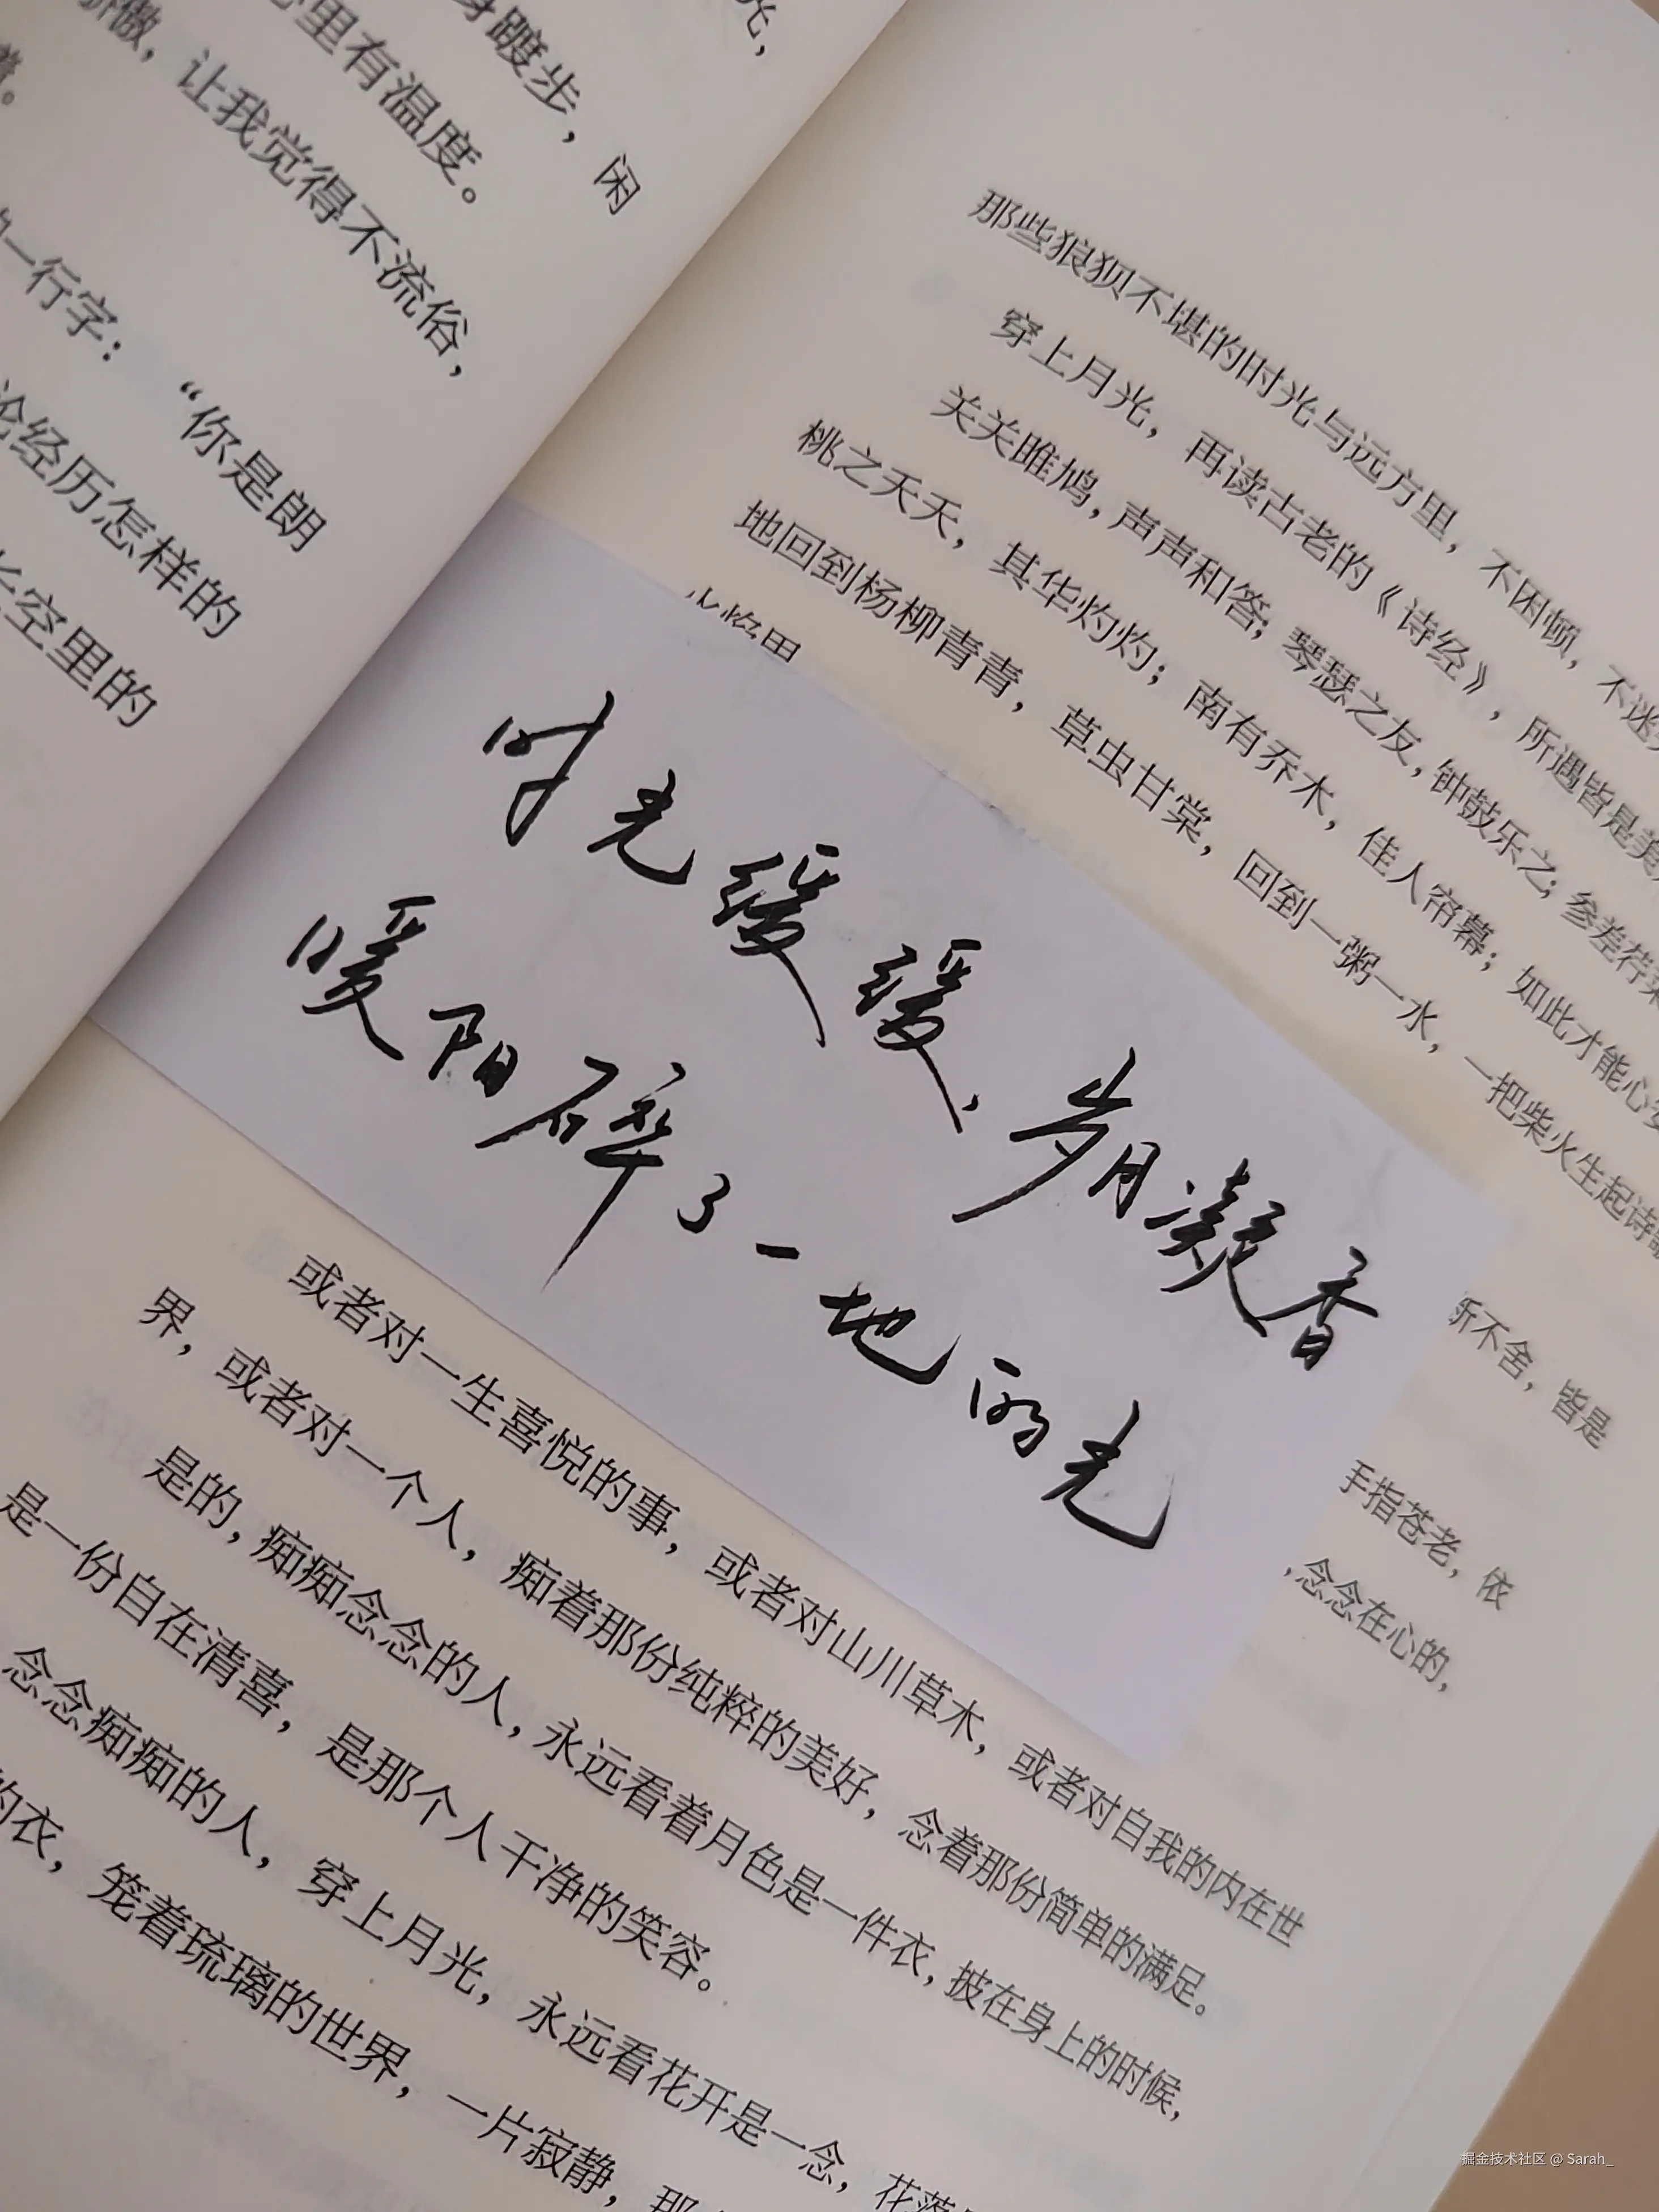 光，
身踱步，闲
里有温度。
傲，让我觉得不流俗，
一行字：“你是朗
论经历怎样的
长空里的
那些狼狈不堪的时光与远方里，不困顿，不迷
穿上月光，再读古老的《诗经》，所遇皆是美
关关雎鸠，声声和答；琴瑟之友，钟鼓乐之；参差荇
桃之夭夭，其华灼灼；南有乔木，佳人帘幕；如此才能心
地回到杨柳青青，草虫甘棠，回到一粥一水，一把柴火生起诗
火焰里
时光缓缓、岁月凝香
暖阳碎了一地的光
不舍，皆是
手指苍老，依
，念念在心的，
或者对一生喜悦的事，或者对山川草木，或者对自我的内在世
界，或者对一个人，痴着那份纯粹的美好，念着那份简单的满足。
是的，痴痴念念的人，永远看着月色是一件衣，披在身上的时候，
是一份自在清喜，是那个人干净的笑容。
念念痴痴的人，穿上月光，永远看花开是一念，花落
的衣，笼着琉璃的世界，一片寂静，那
掘金技术社区 @ Sarah_